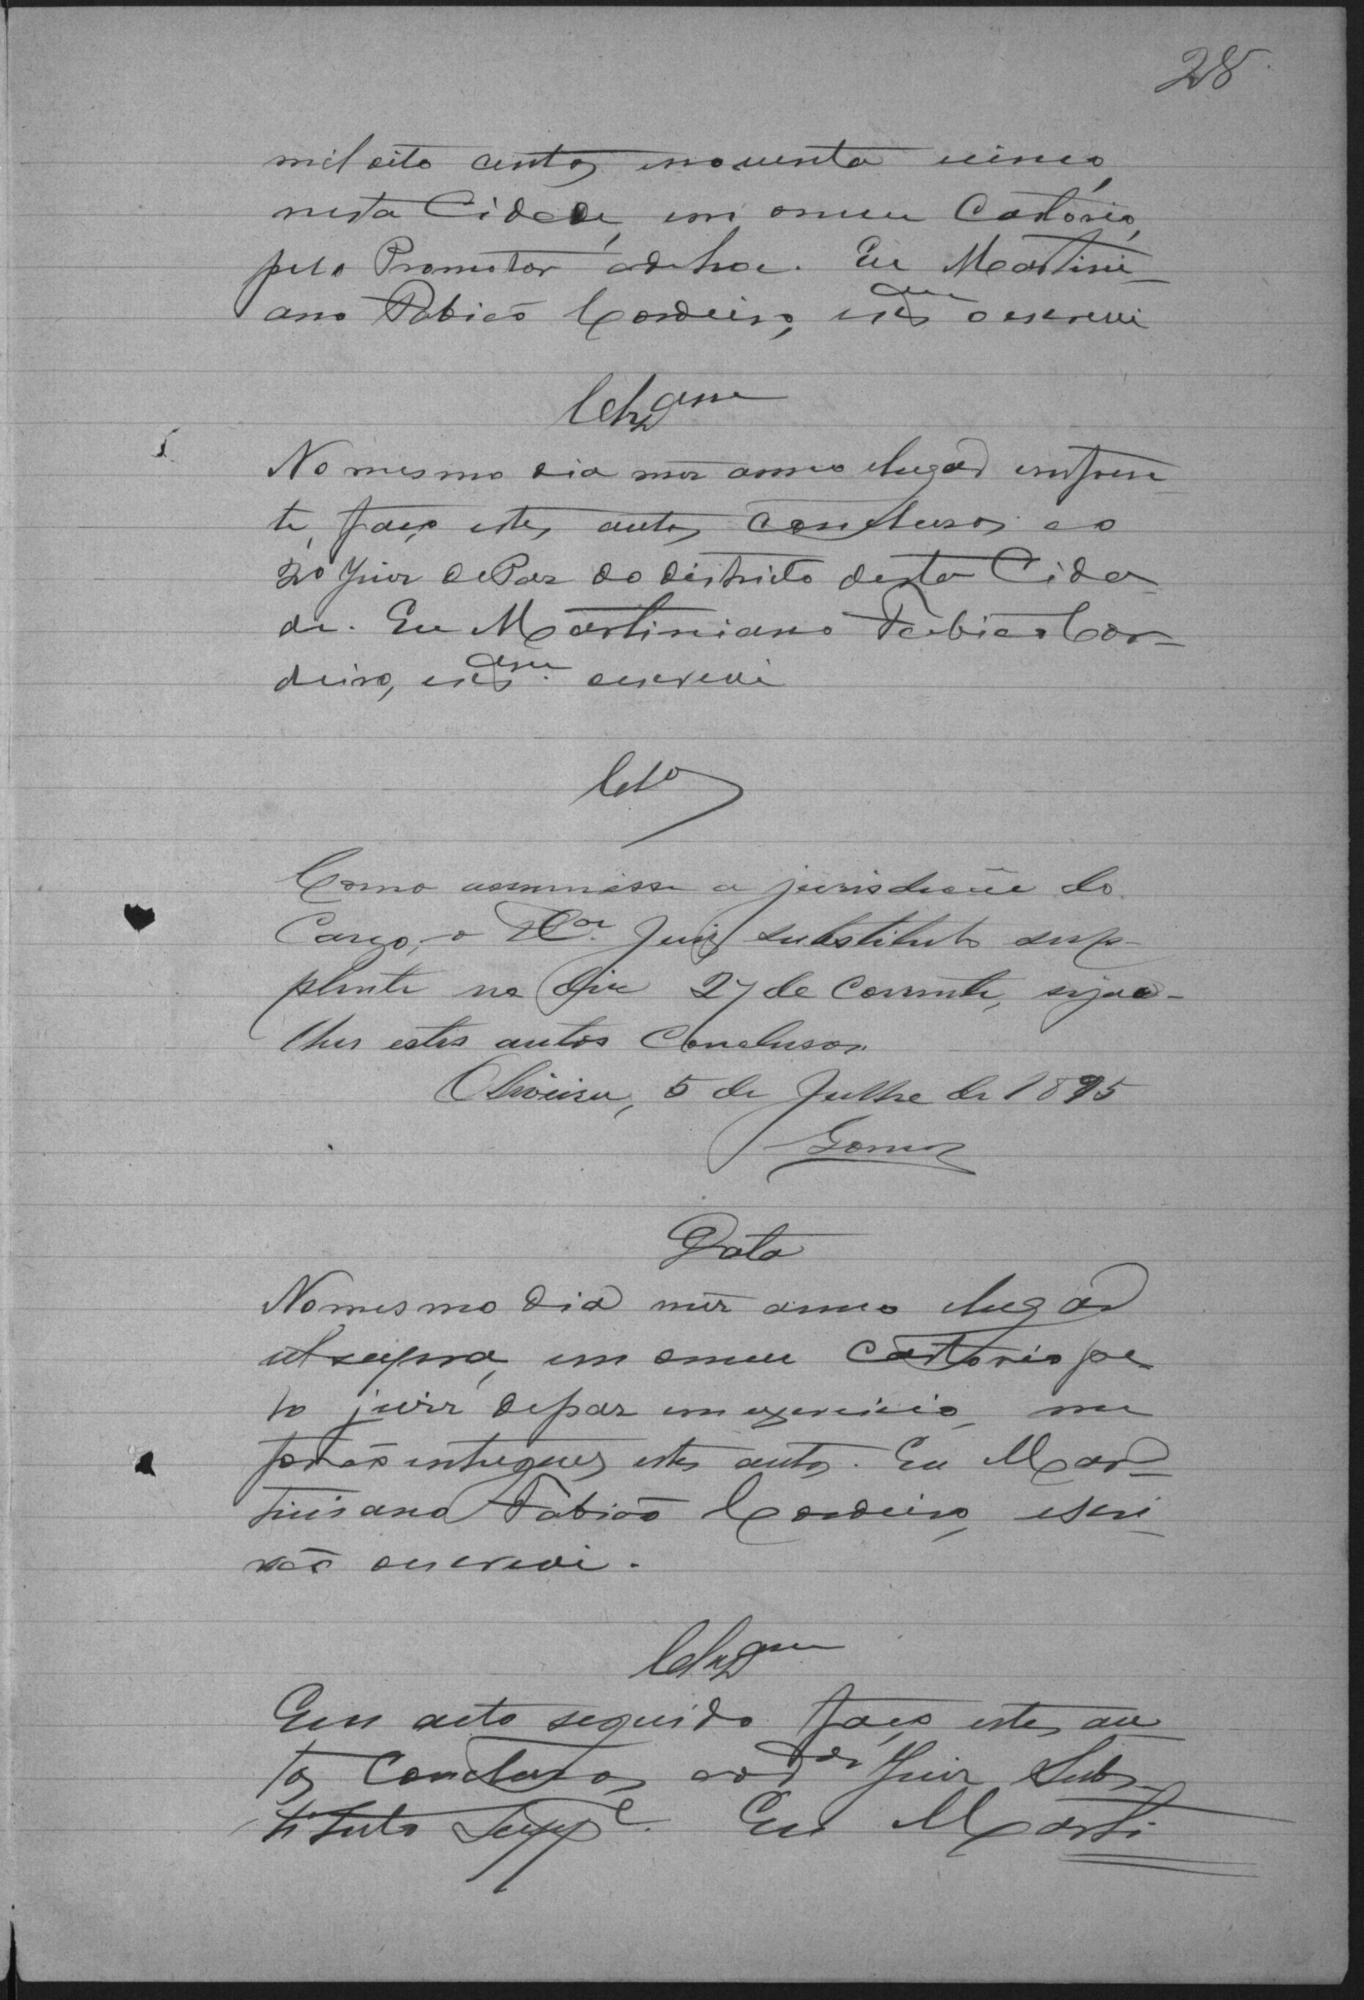 28
mil oito centos enoventa cinco,
nesta Cidade, em o meu Cartorio,
pelo Promotor adhoc. Eu Martini-
ano Fabião Cordeiro, escr o escrevi
Clzam
No mesmo dia mez anno elugar emfren
te, faço estes autos conclusos ao
2º Juiz de Paz do districto desta Cida-
de. Eu Martiniano Fabião Cor-
deiro, escam. oescrevi
Clo
Como assumisse a jurisdicção do
Cargo, o Dor. Juiz substituto sup-
plente no dia 27 de corrente, sejao-
lhes estes autos conclusos.
Oliveira, 5 de Julho de 1895
Gomes
Data
No mesmo dia mez anno elugar
utsupra, em o meu Cartorio pe-
lo juiz depaz em exercicio, me
forão entregues estes autos. Eu Mar-
tiniano Fabião Cordeiro, escri-
vão oescrevi.
Clzam
Em acto seguido faço estes au
tos Conclusos ao Dor Juiz Subs-
tituto Suppe. Eu Marti